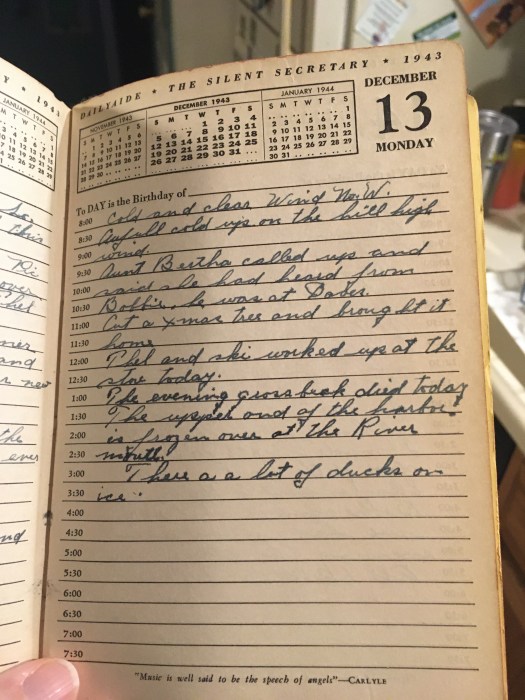 Y * 194
JANUARY 1944
DAILYAIDE * THE SILENT SECRETARY * 1943
NOVEMBER 1943
DECEMBER 1943
S M T W T F S
1 2 3 4
5 6 7 8 9 10 11
12 13 14 15 16 17 18
19 20 21 22 23 24 25
26 27 28 29 30 31
JANUARY 1944
S M T W T F S
1
2 3 4 5 6 7 8
9 10 11 12 13 14 15
16 17 18 19 20 21 22
23 24 25 26 27 28 29
30 31
DECEMBER
13
MONDAY
To DAY is the Birthday of
8:00 Cold and clear Wind No.W.
8:30 Awfull cold up on the hill high
9:00 wind.
9:30 Aunt Bertha called up and
10:00 said she had heard from
10:30 Bobbie, he was at
11:00 Cut a xmas tree and brought it
11:30 home
12:00 Phil and ski worked up at the
12:30 store today.
1:00 The evening grossbeak died today
1:30 The upper end of the harbor
2:00 is frozen over at the River
2:30 mouth.
3:00 There a a lot of ducks on
3:30 ice.
4:00
4:30
5:00
5:30
6:00
6:30
7:00
7:30
"Music is well said to be the speech of angels"—CARLYLE
this
over
and
the